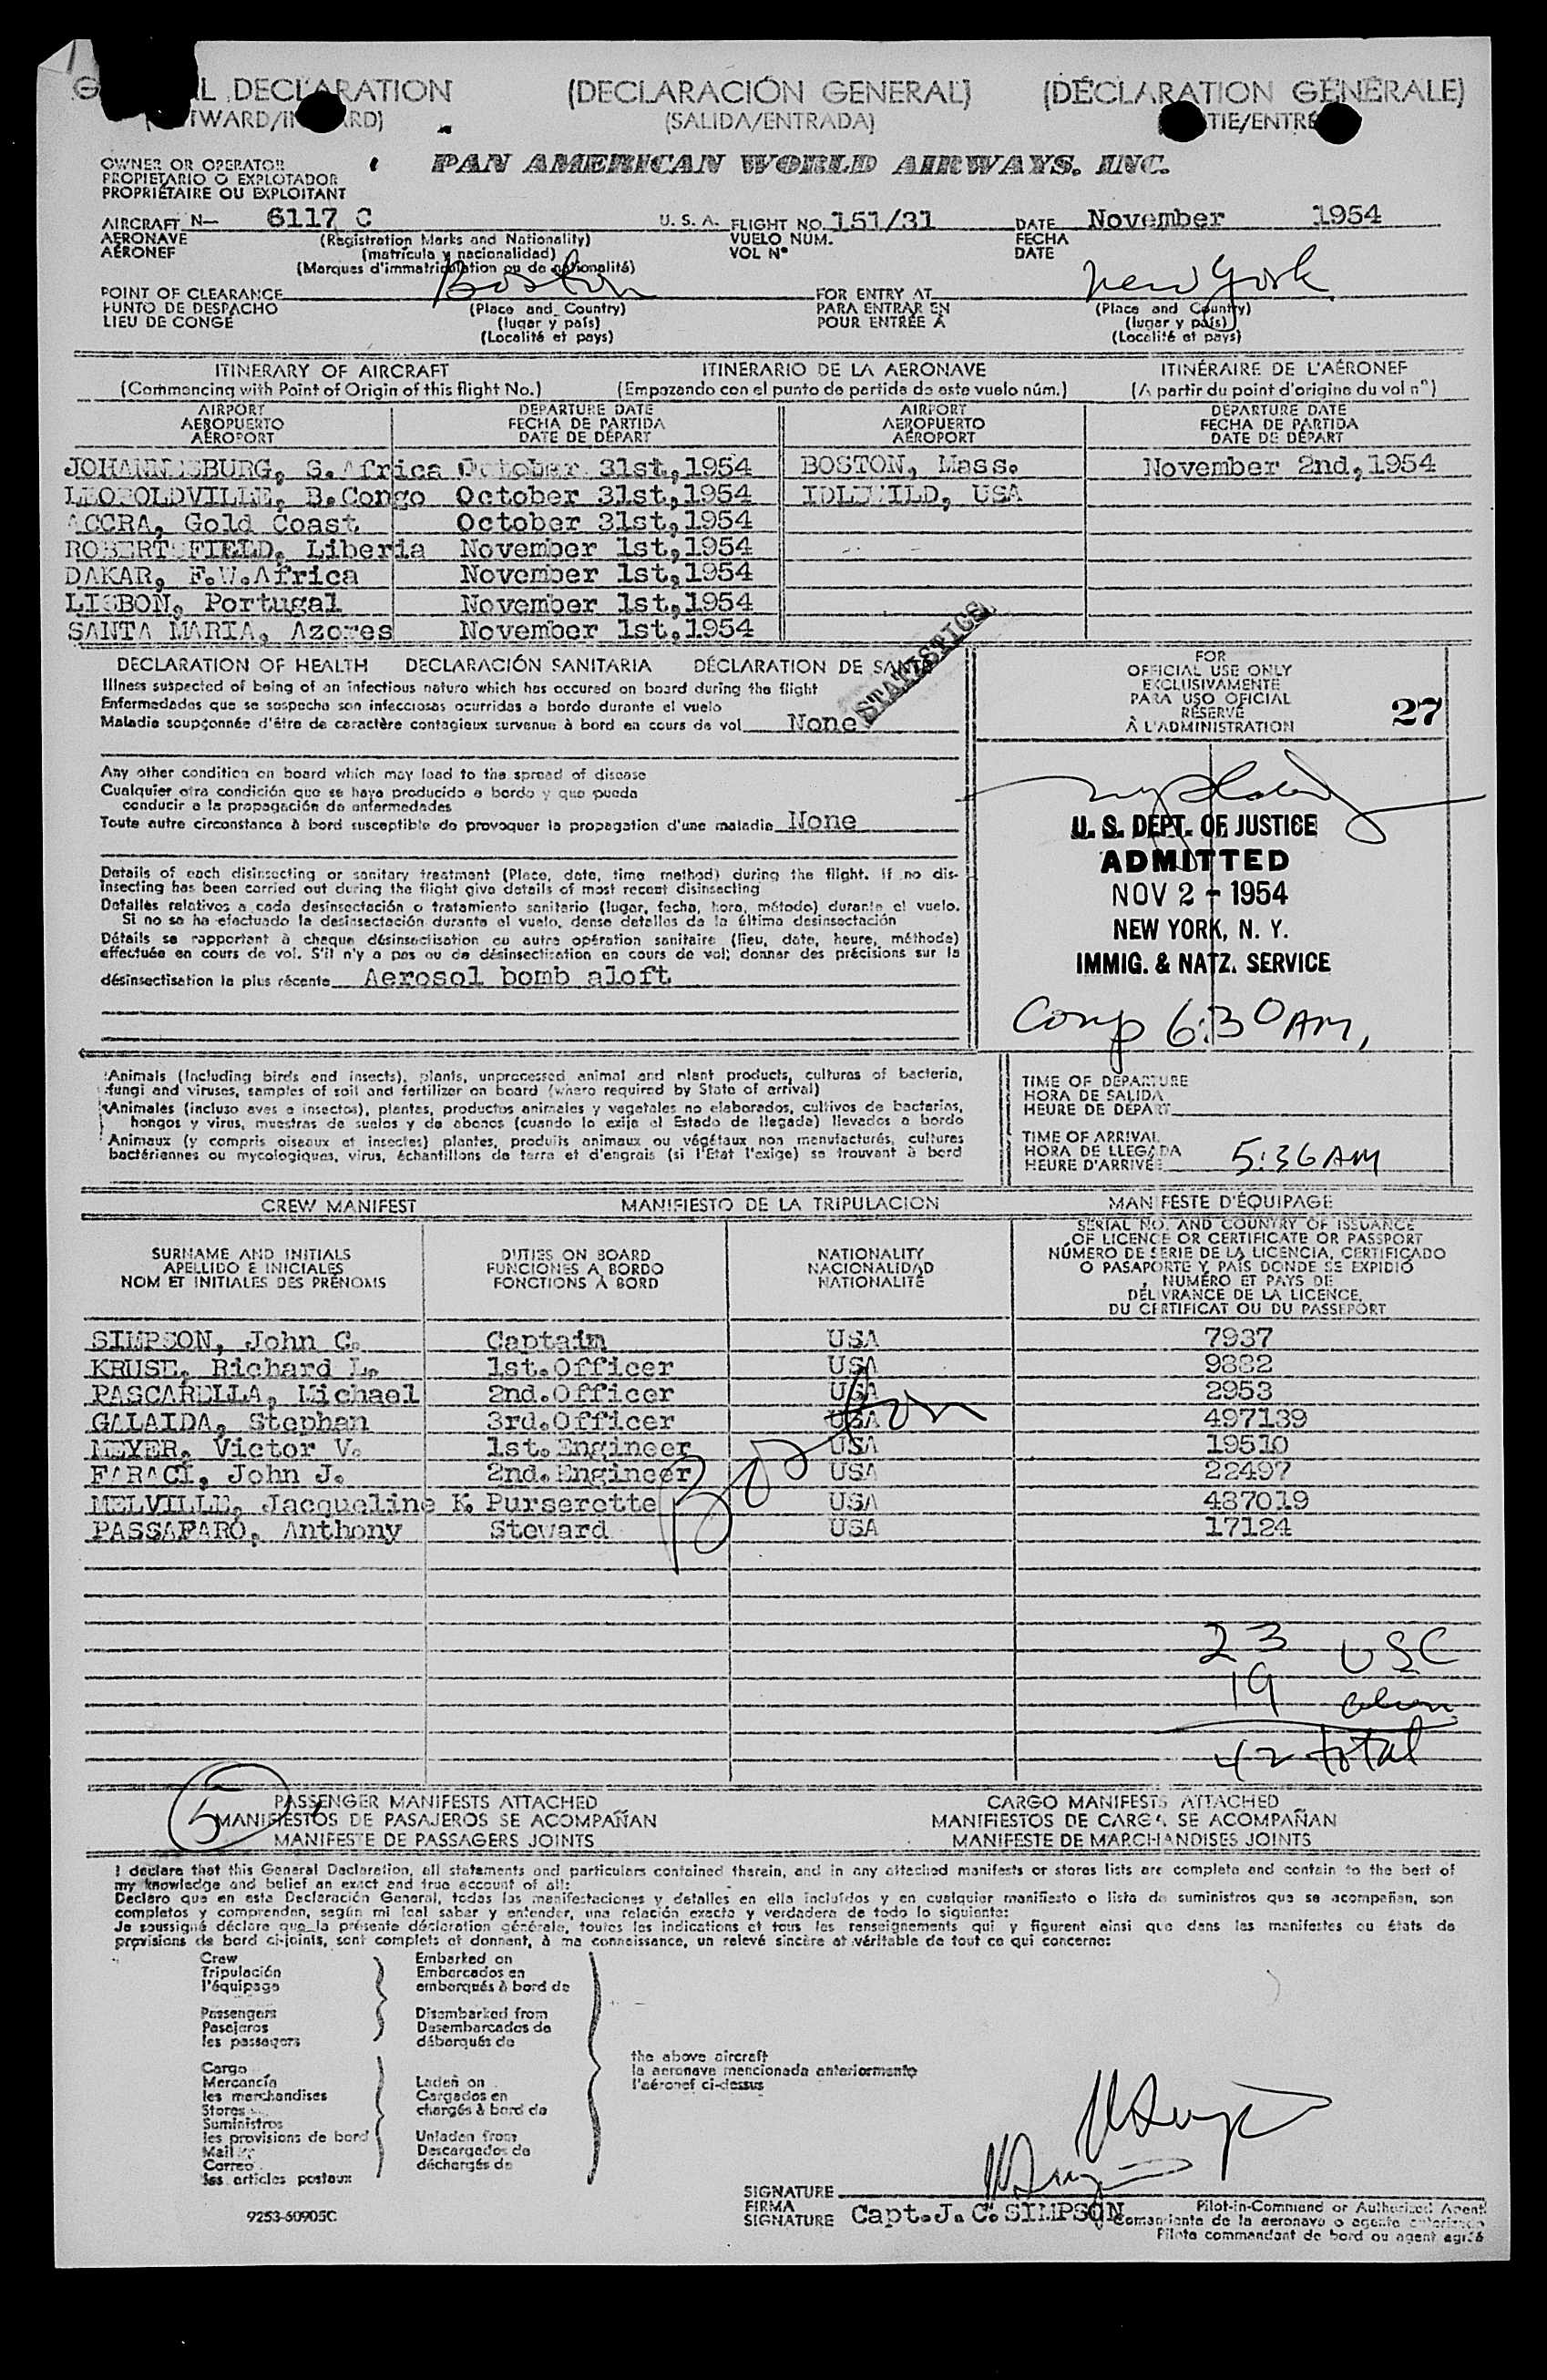 DECLARATION (DECLARACIÓN GENERAL) (DÉCLARATION GÉNÉRALE)
(SALIDA/ENTRADA)
OWNER OR OPERATOR
PROPIETARIO O EXPLOTADOR
PROPRIÉTAIRE OU EXPLOITANT
PAN AMERICAN WORLD AIRWAYS, INC.
AIRCRAFT N— 6117 C U. S. A. FLIGHT NO. 151/31 DATE November 1954
AERONAVE (Registration Marks and Nationality) VUELO NÚM. FECHA
AÉRONEF (matrícula y nacionalidad) VOL N° DATE
(Marques d'immatriculation ou de nationalité)
POINT OF CLEARANCE Boston FOR ENTRY AT New York
PUNTO DE DESPACHO (Place and Country) PARA ENTRAR EN (Place and Country)
LIEU DE CONGÉ (lugar y país) POUR ENTRÉE À (lugar y país)
(Localité et pays) (Localité et pays)
ITINERARY OF AIRCRAFT ITINERARIO DE LA AERONAVE ITINÉRAIRE DE L'AÉRONEF
(Commencing with Point of Origin of this flight No.) (Empezando con el punto de partida de este vuelo núm.) (A partir du point d'origine du vol n°)
AIRPORT DEPARTURE DATE AIRPORT DEPARTURE DATE
AEROPUERTO FECHA DE PARTIDA AEROPUERTO FECHA DE PARTIDA
AÉROPORT DATE DE DÉPART AÉROPORT DATE DE DÉPART
JOHANNESBURG, S.Africa October 31st,1954 BOSTON, Mass. November 2nd,1954
LEOPOLDVILLE, B.Congo October 31st,1954 IDLEWILD, USA
ACCRA, Gold Coast October 31st,1954
ROBERTSFIELD, Liberia November 1st,1954
DAKAR, F.W.Africa November 1st,1954
LISBON, Portugal November 1st,1954
SANTA MARIA, Azores November 1st,1954
STATISTICS
DECLARATION OF HEALTH DECLARACIÓN SANITARIA DÉCLARATION DE SANTÉ
Illness suspected of being of an infectious nature which has occured on board during the flight
Enfermedades que se sospecha son infecciosas ocurridas a bordo durante el vuelo
Maladie soupçonnée d'être de caractère contagieux survenue à bord en cours de vol None
Any other condition on board which may lead to the spread of disease
Cualquier otra condición que se haya producido a bordo y que pueda
conducir a la propagación de enfermedades
Toute autre circonstance à bord susceptible de provoquer la propagation d'une maladie None
Details of each disinsecting or sanitary treatment (Place, date, time method) during the flight. If no dis-
insecting has been carried out during the flight give details of most recent disinsecting
Detalles relativos a cada desinsectación o tratamiento sanitario (lugar, fecha, hora, método) durante el vuelo.
Si no se ha efectuado la desinsectación durante el vuelo, dense detalles de la última desinsectación
Détails se rapportant à chaque désinsectisation ou autre opération sanitaire (lieu, date, heure, méthode)
effectuée en cours de vol. S'il n'y a pas eu de désinsectisation en cours de vol; donner des précisions sur la
désinsectisation la plus récente Aerosol bomb aloft
FOR
OFFICIAL USE ONLY
EXCLUSIVAMENTE
PARA USO OFICIAL
RÉSERVÉ
À L'ADMINISTRATION
27
U. S. DEPT. OF JUSTICE
ADMITTED
NOV 2 - 1954
NEW YORK, N. Y.
IMMIG. & NATZ. SERVICE
Comp 6:30 AM.
Animals (Including birds and insects), plants, unprocessed animal and plant products, cultures of bacteria,
fungi and viruses, samples of soil and fertilizer on board (where required by State of arrival)
Animales (incluso aves e insectos), plantas, productos animales y vegetales no elaborados, cultivos de bacterias,
hongos y virus, muestras de suelos y de abonos (cuando lo exija el Estado de llegada) llevados a bordo
Animaux (y compris oiseaux et insectes) plantes, produits animaux ou végétaux non manufacturés, cultures
bactériennes ou mycologiques, virus, échantillons de terre et d'engrais (si l'Etat l'exige) se trouvant à bord
TIME OF DEPARTURE
HORA DE SALIDA
HEURE DE DÉPART
TIME OF ARRIVAL
HORA DE LLEGADA
HEURE D'ARRIVÉE 5:36 AM
CREW MANIFEST MANIFIESTO DE LA TRIPULACION MANIFESTE D'ÉQUIPAGE
SURNAME AND INITIALS
APELLIDO E INICIALES
NOM ET INITIALES DES PRÉNOMS
DUTIES ON BOARD
FUNCIONES A BORDO
FONCTIONS À BORD
NATIONALITY
NACIONALIDAD
NATIONALITÉ
SERIAL NO. AND COUNTRY OF ISSUANCE
OF LICENCE OR CERTIFICATE OR PASSPORT
NÚMERO DE SERIE DE LA LICENCIA, CERTIFICADO
O PASAPORTE Y PAÍS DONDE SE EXPIDIÓ
NUMÉRO ET PAYS DE
DÉLIVRANCE DE LA LICENCE,
DU CERTIFICAT OU DU PASSEPORT
SIMPSON, John C. Captain USA 7937
KRUSE, Richard L. 1st.Officer USA 9882
PASCARELLA, Michael 2nd.Officer USA 2953
GALAIDA, Stephan 3rd.Officer USA 497139
MEYER, Victor V. 1st.Engineer USA 19510
FARACI, John J. 2nd.Engineer USA 22497
MELVILLE, Jacqueline K. Purserette USA 487019
PASSAFARO, Anthony Steward USA 17124
Boston
23 USC
19 alien
42 total
5
PASSENGER MANIFESTS ATTACHED CARGO MANIFESTS ATTACHED
MANIFIESTOS DE PASAJEROS SE ACOMPAÑAN MANIFIESTOS DE CARGA SE ACOMPAÑAN
MANIFESTE DE PASSAGERS JOINTS MANIFESTE DE MARCHANDISES JOINTS
I declare that this General Declaration, all statements and particulars contained therein, and in any attached manifests or stores lists are complete and contain to the best of
my knowledge and belief an exact and true account of all:
Declaro que en esta Declaración General, todas las manifestaciones y detalles en ella incluídos y en cualquier manifiesto o lista de suministros que se acompañan, son
completos y comprenden, según mi leal saber y entender, una relación exacta y verdadera de todo lo siguiente:
Je soussigné déclare que la présente déclaration générale, toutes les indications et tous les renseignements qui y figurent ainsi que dans les manifestes ou états de
provisions de bord ci-joints, sont complets et donnent, à ma connaissance, un relevé sincère et véritable de tout ce qui concerne:
Crew Embarked on
Tripulación Embarcados en
l'équipage embarqués à bord de
Passengers Disembarked from
Pasajeros Desembarcados de
les passagers débarqués de
the above aircraft
la aeronave mencionada anteriormente
l'aéronef ci-dessus
Cargo
Mercancía Laden on
les marchandises Cargados en
Stores chargés à bord de
Suministros
les provisions de bord Unladen from
Mail Descargados de
Correo déchargés de
les articles postaux
SIGNATURE
FIRMA
SIGNATURE Capt.J. C. SIMPSON
Pilot-in-Command or Authorized Agent
Comandante de la aeronave o agente autorizado
Pilote commandant de bord ou agent agréé
9253-50905C